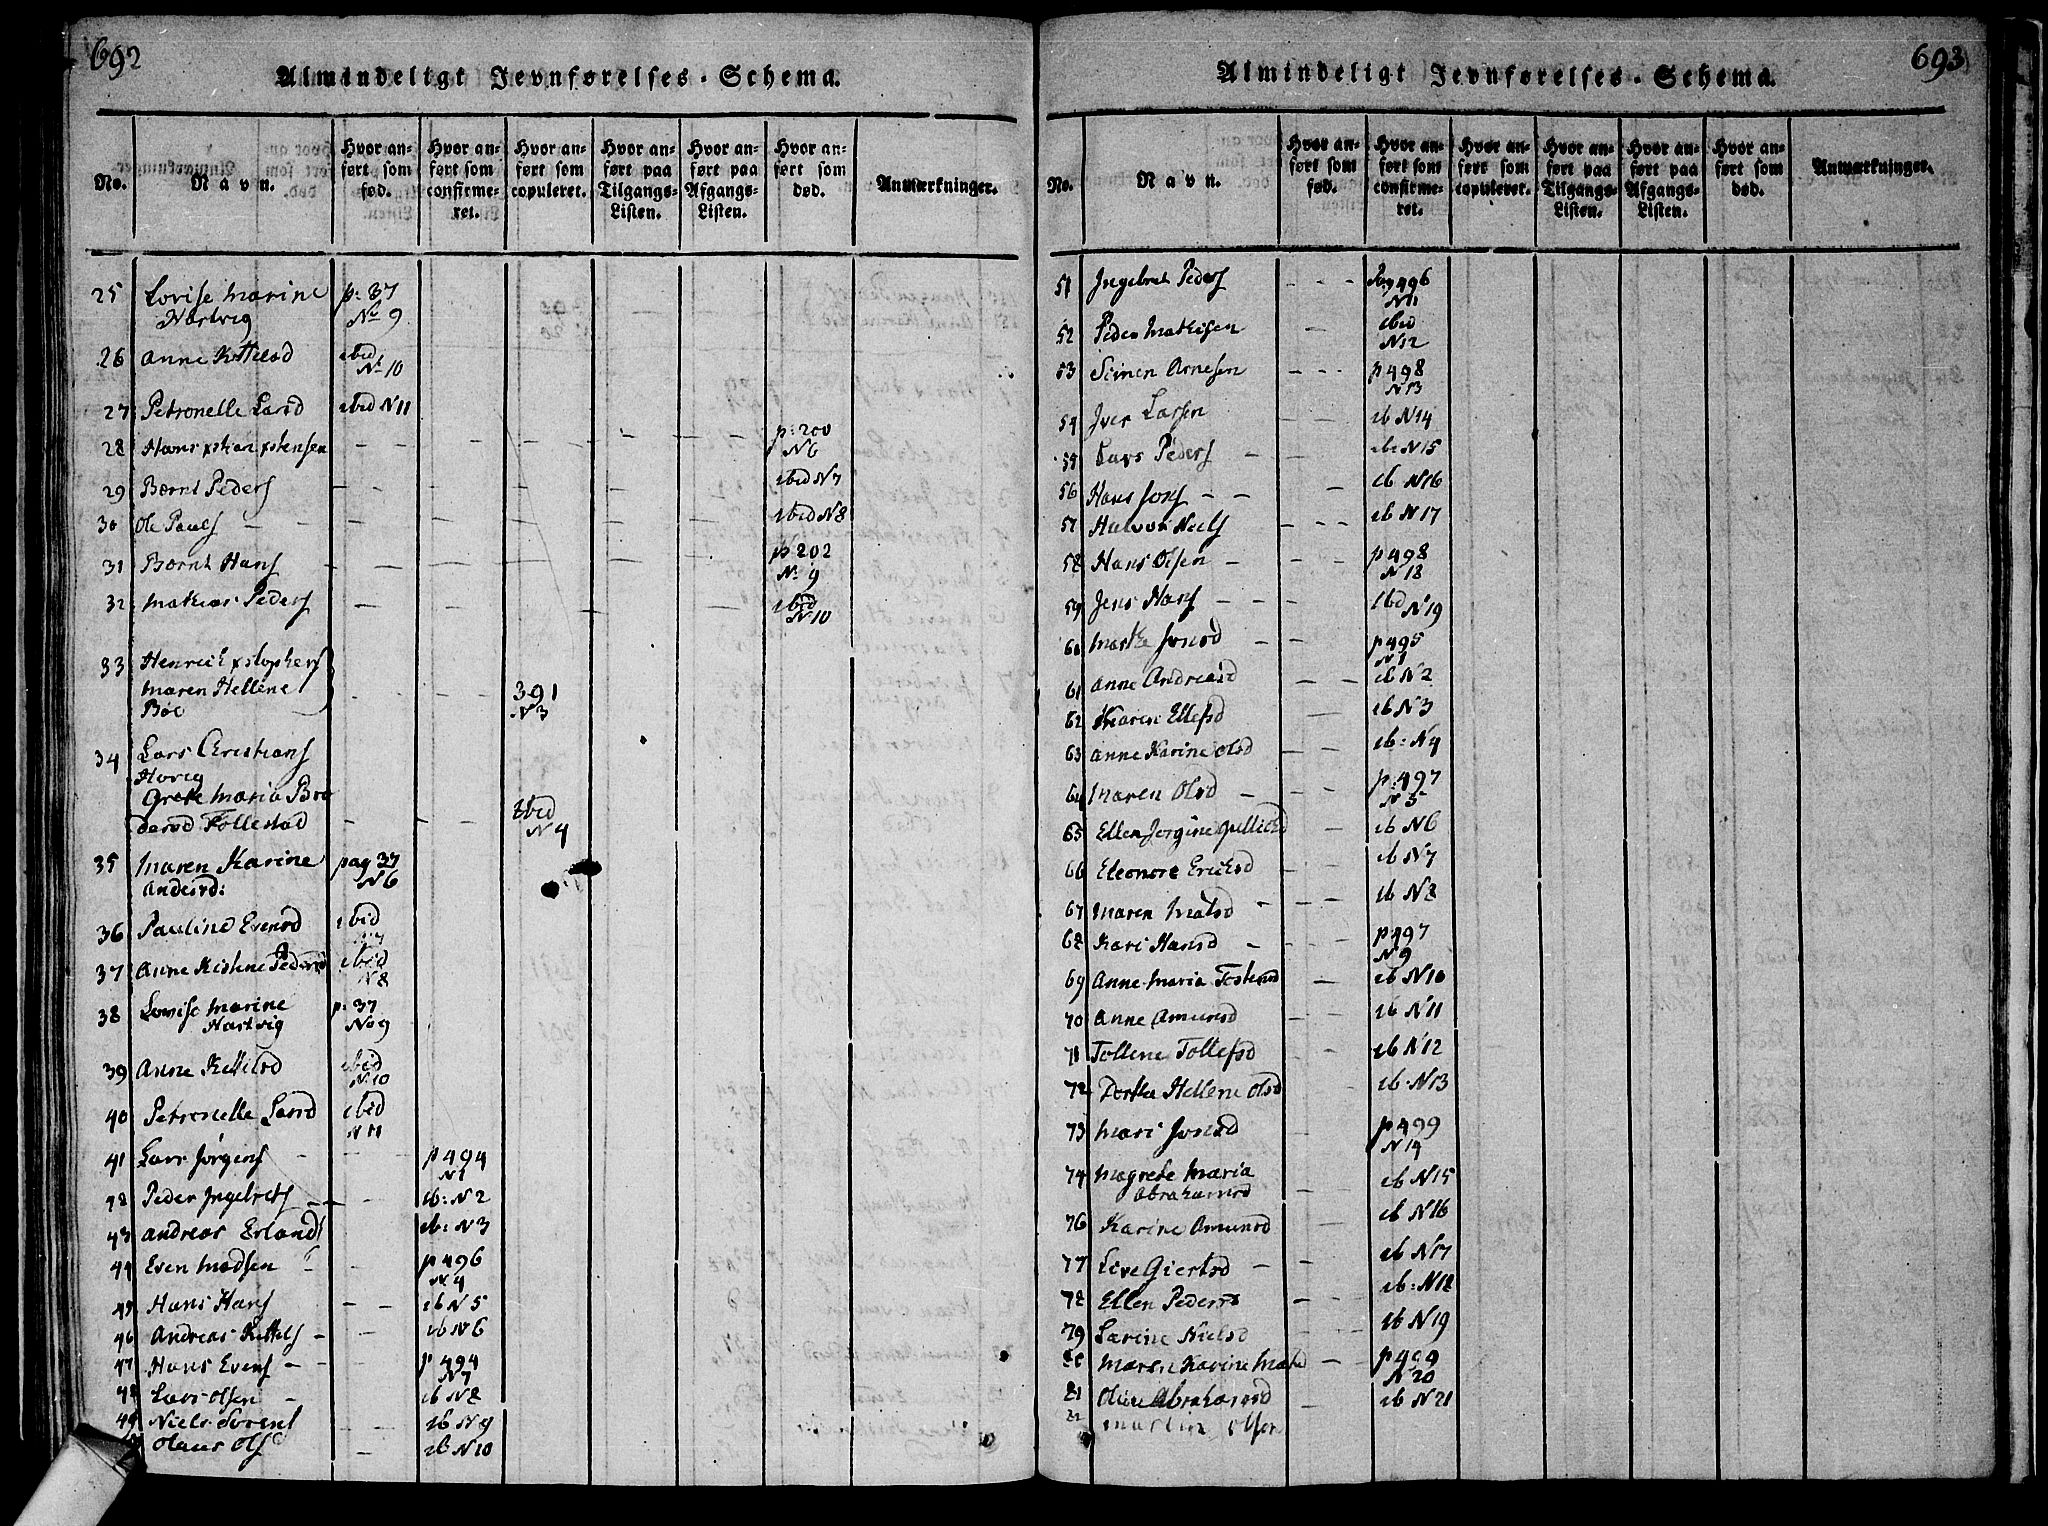 692
Almindeligt Jevnførelses-Schema.
No.
Navn.
Hvor an-
ført som
fød.
Hvor an-
ført som
confirme-
ret.
Hvor an-
ført som
copuleret.
Hvor an-
ført paa
Tilgangs-
Listen.
Hvor an-
ført paa
Afgangs-
Listen.
Hvor an-
ført som
død.
Anmærkninger.
25 Lovise Marine p: 37
Hartvig No 9
26 Anne Kittelsd ibid
No 10
27 Petronelle Larsd ibid N 11
28 Hans xstian xstensen - - - - - p: 200
N 6
29 Bernt Peders - - - - - ibid N 7
30 Ole Pauls - - - - - ibid N 8
31 Bernt Hans - - - - - p 202
No 9
32 Mathias Peders - - - - - ibid
No 10
33 Henrich xstophers
Maren Hellene - - 391
Böe N 3
34 Lars Christians
Hovig
Grete Maria Bro
dersd Follestad - - - ibid
N 4
35 Maren Karine pag 37
Andersd: N 6
36 Pauline Evensd ibid
N 7
37 Anne Kistine Pedersd ibid
N 8
38 Lovise Marine p: 37
Hartvig No 9
39 Anne Kittilsd ibid
No 10
40 Petronelle Larsd ibid
N 11
41 Lars Jørgens - - p 494
N 1
42 Peder Ingebrets - - ib: N 2
43 Andreas Erlands ib: N 3
44 Even Madsen - - p 496
N. 4
45 Hans Hans - - ib N 5
46 Andreas Kittels - - ib N 6
47 Hans Evens - - p 494
N 7
48 Lars Olsen - ib N 8
49 Niels Sørens - - ib N 9
Olaus Ols - ib N 10
693
Almindeligt Jevnførelses-Schema.
No.
Navn.
Hvor an-
ført som
fød.
Hvor an-
ført som
confirme-
ret.
Hvor an-
ført som
copuleret.
Hvor an-
ført paa
Tilgangs-
Listen.
Hvor an-
ført paa
Afgangs-
Listen.
Hvor an-
ført som
død.
Anmærkninger.
51 Ingebret Peders - - - Pag 496
N 11
52 Peder Mathisen - - ibid
N 12
53 Simen Arnesen - - - p 498
N 13
54 Iver Larsen ib N 14
55 Lars Peders - - ib N 15
56 Hans Jons - - - ib N 16
57 Halvor Niels - - - ib N 17
58 Hans Olsen - - p 498
N 18
59 Jens Hans - - - ibd N 19
60 Marthe Jonsd - - p 495
N 1
61 Anne Andreasd - - ib N 2
62 Karen Ellefsd - ib N 3
63 Anne Karine Olsd - - ib: N 4
64 Maren Olsd - - - p: 497
N 5
65 Ellen Jorgine - ib N 6
66 Eleonore Ericksd - - ib N 7
67 Maren Matsd - - - ib N 8
68 Kari Hansd - - - p 497
N 9
69 Anne Maria Tostensd - ib N 10
70 Anne Amunsd - - ib N 11
71 Tollene Tollefsd - - ib N 12
72 Dorthe Hellene Olsd - ib N 13
73 Mari Jonsd - p 499
N 14
74 Magrete Maria ib N 15
Abrahamsd -
76 Karine Amunsd - ib N 16
77 Live Giertsd - - ib N 17
78 Ellen Pedersd - - ib: N 18
79 Larine Nielsd - - ib N 19
80 Maren Karine - p 499
N 20
81 Oline Abrahamsd - ib N 21
Olsen